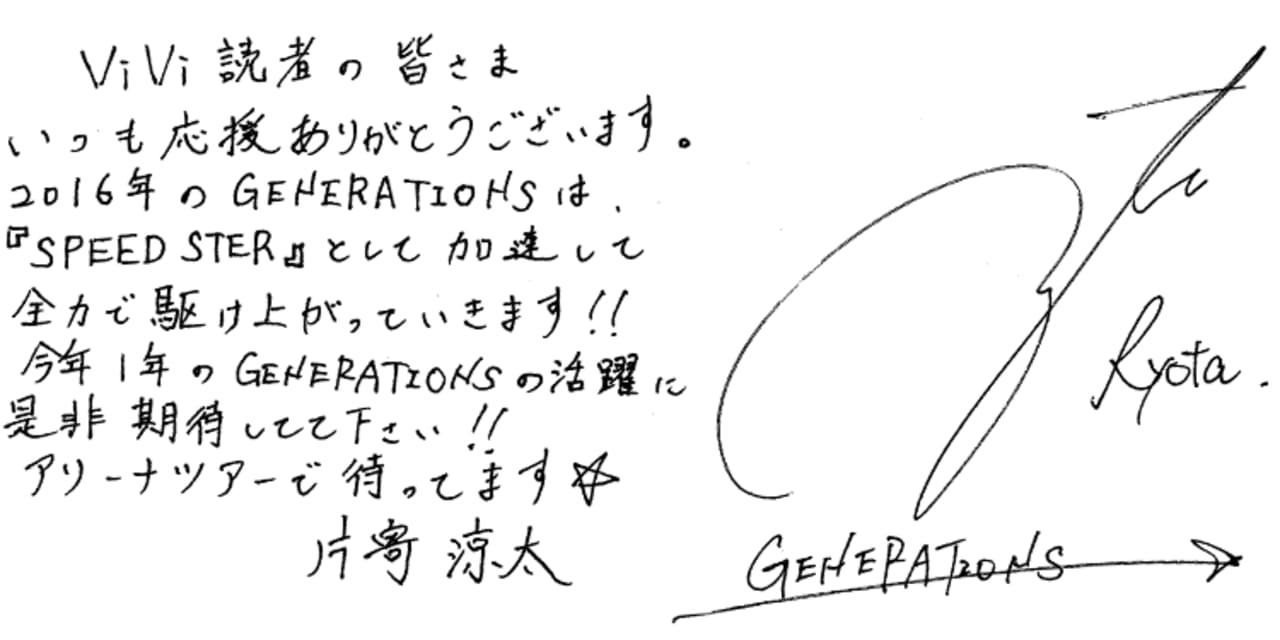 ViVi読者の皆さま
いつも応援ありがとうございます。
2016年のGENERATIONSは、
『SPEEDSTER』として加速して
全力で駆け上がっていきます!!
今年1年のGENERATIONSの活躍に
是非期待してて下さい!!
アリーナツアーで待ってます☆
片寄涼太
Ryota.
GENERATIONS